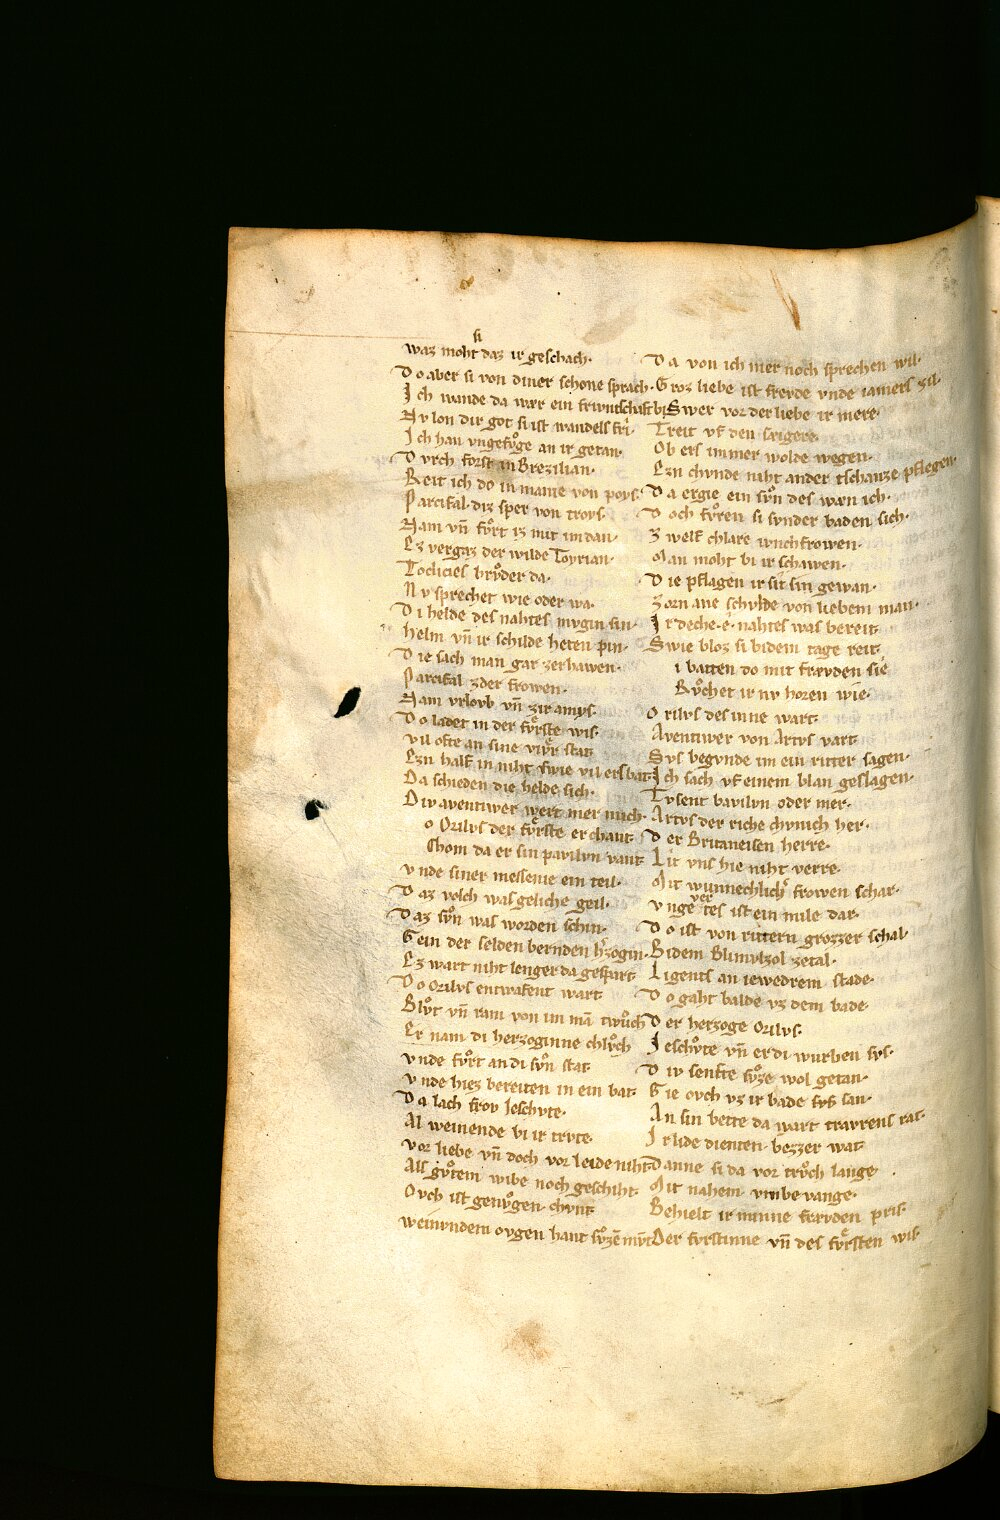 si
waz moht daz ir geschach·
Do aber si von diner schone sprach·
Ich wande da wær ein friwntschaft bi
Nv lon dir got si ist wandels fri·
Ich han vngefvͦge an ir getan·
Dvrch forst in Brezilian·
Reit ich do in manie von poys·
Parcifal diz sper von troys·
Nam vnd fvͦrt iz mit im dan·
Ez vergaz der wilde Toyrian·
Tocliciels brvͦder da·
Nv sprechet wie oder wa·
Di helde des nahtes mvgin sin·
helm vn̄ ir schilde heten pin·
Die sach man gar zerhawen·
Parcifal zder frowen·
Nam vrlovb vn̄ zir amys·
Do ladet in der fvͤrste wis·
vil ofte an sine vivͤr stat
Ezn half in niht swie vil ers bat
Da schieden die helde sich·
Div aventiwer wert mer mich·
o Orilvs der fvͤrste erchant
Chom da er sin pavilvn vant
vnde siner messenie ein teil·
Daz volch was geliche geil·
Daz svͦn was worden schin·
Gein der selden bernden h'zogin·
Ez wart niht lenger da gespart
Do Orilvs entwafent wart
Blvͦt vn̄ ram von im mā twvͦch
Er nam di herzoginne chlvͦch
vnde fvͦrt an di svͦn stat
vnde hiez bereiten in ein bat·
Da lach frov Jeschvte·
Al weinende bi ir trvte·
vor liebe vn̄ doch vor leide niht
Als gvͦtem wibe noch geschiht·
Ovch ist genvͦgen chvnt
weinvndem ovgen hant svͦzē mvͦt
Da von ich mer noch sprechen wil·
Groz liebe ist frevde vnde iamers zil·
Swer vor der liebe ir mere·
Treit vf den seigere·
Ob ers immer wolde wegen·
Ezn chvnde niht ander tschanze pflegen·
Da ergie ein svͦn des wæn ich·
Doch fvͦren si svnder baden sich·
Zwelf chlare ivnchfrowen·
Man moht bi ir schawen·
Die pflagen ir sit sin gewan·
Zorn ane schvlde von liebem man·
Ir deche·e· nahtes was bereit·
Swie bloz si bi dem tage reit·
i batten do mit frævden sie
Rvͦchet ir nv horen wie·
Orilvs des inne wart·
Aventiwer von Artvs vart·
Svs begvnde im ein ritter sagen·
Ich sach vf einem blan geslagen·
Tvsent bavilvn oder mer·
Artvs der riche chvnich her·
Der Britaneisen herre·
Lit vns hie niht verre·
Mit wunnechlich' frowen schar·
ver
vnge tes ist ein mile dar·
Do ist von rittern grozzer schal·
Bi dem Plimvlzol zetal·
Ligents an iewedrem stade·
Do gaht balde vz dem bade·
Der herzoge Orilvs·
Jeschvͦte vn̄ er di wurben svs·
Div senfte svͦze wol getan·
Gie ovch vz ir bade svs san·
An sin bette da wart travrens rat·
Ir lide dienten· bezzer wat·
Danne si da vor trvͦch lange·
Mit nahem vmbe vange·
Behielt ir minne frævden pris·
Der fvrstinne vn̄ des fvͤrsten wis·